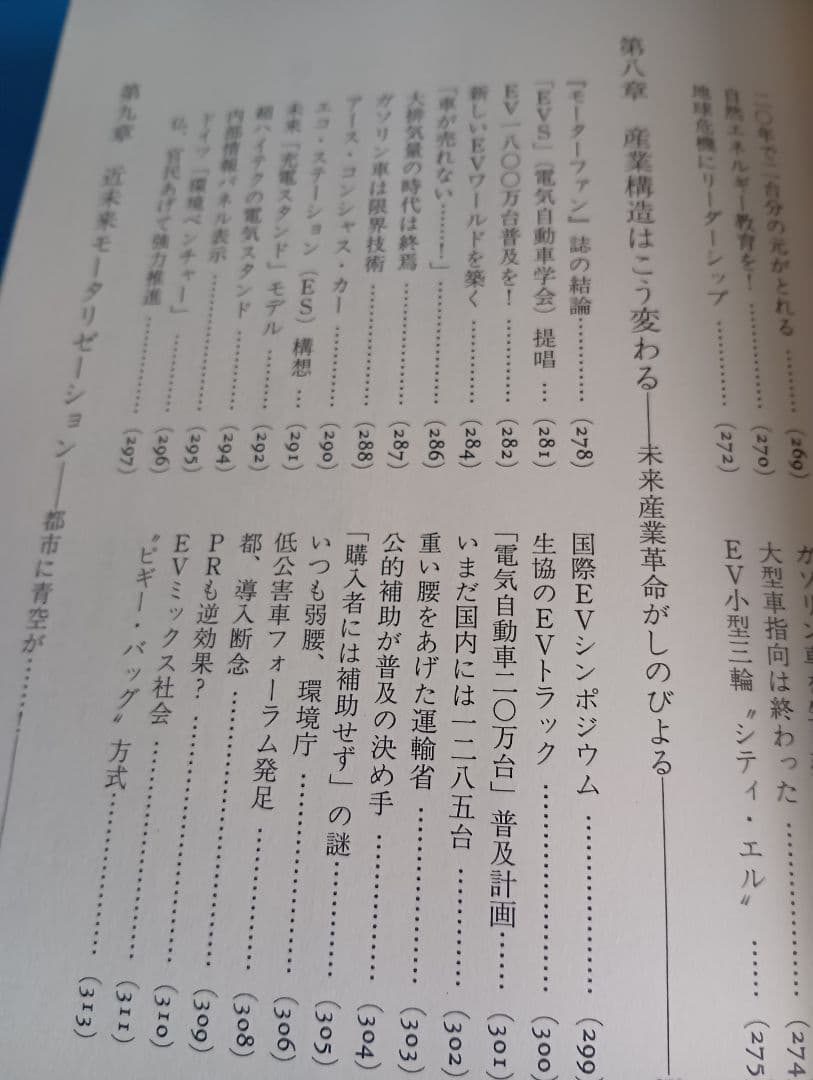 二〇年で一台分の元がとれる…………(269)
自然エネルギー教育を!…………(270)
地球危機にリーダーシップ…………(272)
大型車指向は終わった…………(274)
EV小型三輪〝シティ・エル〟……(275)
第八章 産業構造はこう変わる――未来産業革命がしのびよる――
『モーターファン』誌の結論…………(278)
「EVS」(電気自動車学会)提唱…(281)
EV一八〇〇万台普及を!…………(282)
新しいEVワールドを築く…………(284)
「車が売れない……!」…………(286)
大排気量の時代は終焉…………(287)
ガソリン車は限界技術…………(288)
アース・コンシャス・カー…………(290)
エコ・ステーション(ES)構想…(291)
未来「充電スタンド」モデル…………(292)
超ハイテクの電気スタンド…………(294)
内部情報パネル表示…………(295)
ドイツ「環境ベンチャー」…………(296)
仏、官民あげて強力推進…………(297)
国際EVシンポジウム…………(299)
生協のEVトラック…………(300)
「電気自動車二〇万台」普及計画……(301)
いまだ国内には一二八五台…………(302)
重い腰をあげた運輸省…………(303)
公的補助が普及の決め手…………(304)
「購入者には補助せず」の謎…………(305)
いつも弱腰、環境庁…………(306)
低公害車フォーラム発足…………(308)
都、導入断念…………(309)
PRも逆効果?…………(310)
EVミックス社会…………(311)
〝ピギー・バッグ〟方式…………(313)
第九章 近未来モータリゼーション――都市に青空が……!――